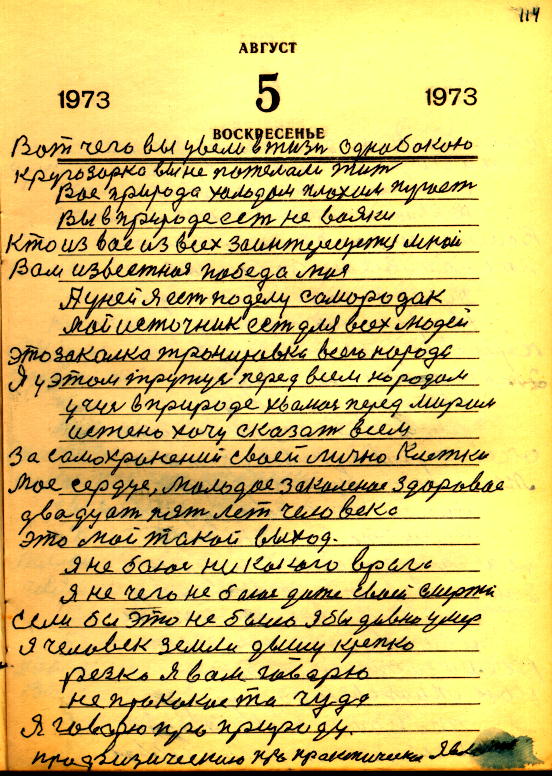 114
АВГУСТ
1973 5 1973
ВОСКРЕСЕНЬЕ
Вот чего вы увели в жизн однобокою
кругозорка вы не пожелали жит
Вас природа холодом плохим пугает
Вы в природе ест не вояки
Кто из вас из всех заинтересуется мной
Вам известная победа моя
Я у ней Я ест по делу самородак
Мой источник ест для всех людей
Это закалка тронировка всего народа
Я у этом тружус перед всем народам
учус в природе хвамос перед миром
истено хочу сказат всем
За самохранений своей лично Клетки
Мое сердце, молодое закаленое здоровае
двадцат пят лет человека
Это мой такой выход.
Я не боюс никокого врага
Я не чего не боюс даже своей смерти
Если бы это не было Я бы давно умер
Я человек земли дышу крепко
резко Я вам говарю
не про кокоета чудо
Я говарю про природу.
про физическию про практическа